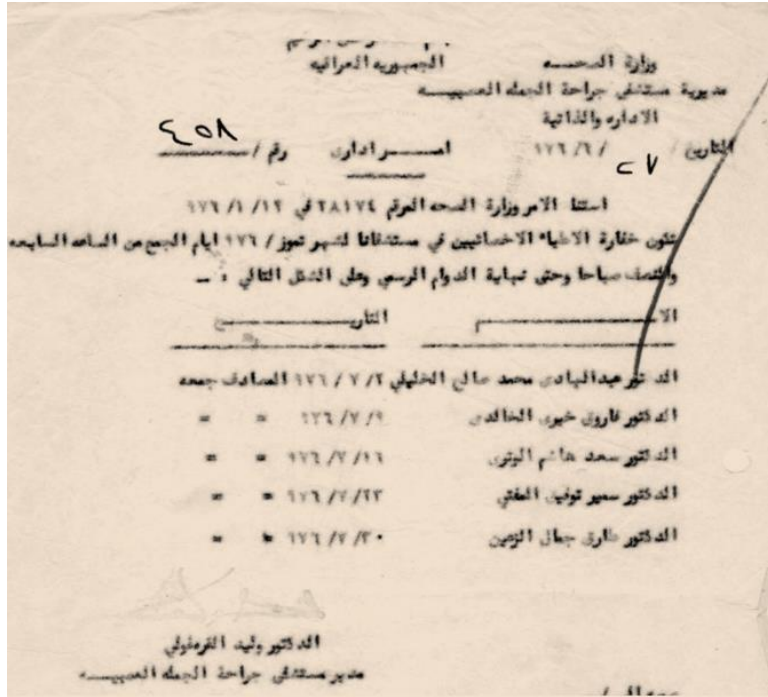 وزارة الصحــــه
الجمهوريه العراقيه
مديرية مستشفى جراحة الجمله العصبيــــه
الاداره والذاتية
٤٥٨
التاريخ / ٢٧ / ٦ / ٩٧٦
امــــر ادارى
رقم /
استنا الامر وزارة الصحه المرقم ٢٨١٧٤ في ١٢/ ١/ ٩٧٦
تكون خفارة الاطباء الاخصائيين في مستشفانا لشهر تموز / ٩٧٦ ايام الجمع من الساعه السابعه
والنصف صباحا وحتى نهاية الدوام الرسمي وعلى الشكل التالي : ــ
الاســــــم
التاريــــــخ
الدكتور عبدالهادى محمد صالح الخليلي ٢/ ٧ / ٩٧٦ المصادف جمعه
الدكتور فاروق خيرى الخالدى ٩/ ٧/ ٩٧٦ = =
الدكتور سعد هاشم الوترى ١٦/ ٧/ ٩٧٦ = =
الدكتور سمير توفيق المفتي ٢٣/ ٧/ ٩٧٦ = =
الدكتور طارق جمال الزعين ٣٠/ ٧/ ٩٧٦ = =
الدكتور وليد القرمغولي
مدير مستشفى جراحة الجمله العصبيــــه